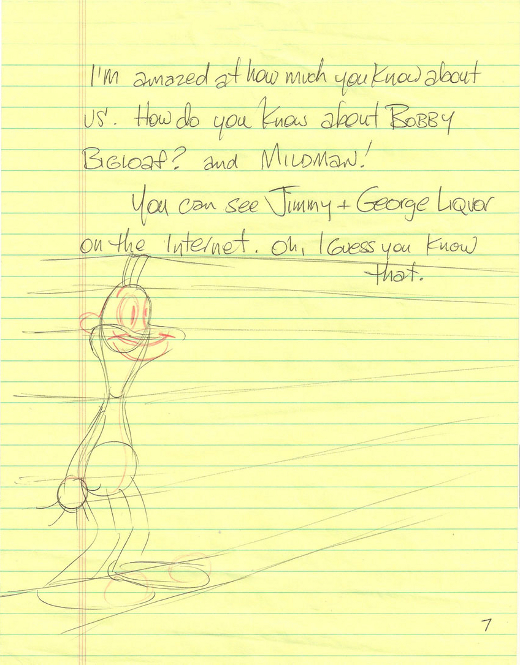 I'm amazed at how much you know about
us. How do you know about BOBBY
BIGLOAF? and MILDMAN!
You can see Jimmy + George Liquor
on the Internet. Oh, I Guess you know
that.
7